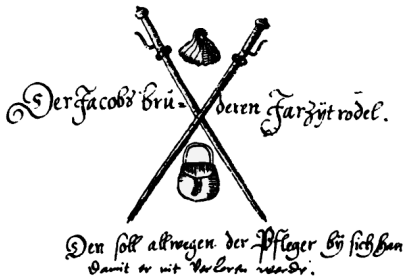 Der Jacobs brü-deren Jarzÿt rödel.
Den soll allwegen der Pfleger bÿ sich han
damit er nit verloren werde.